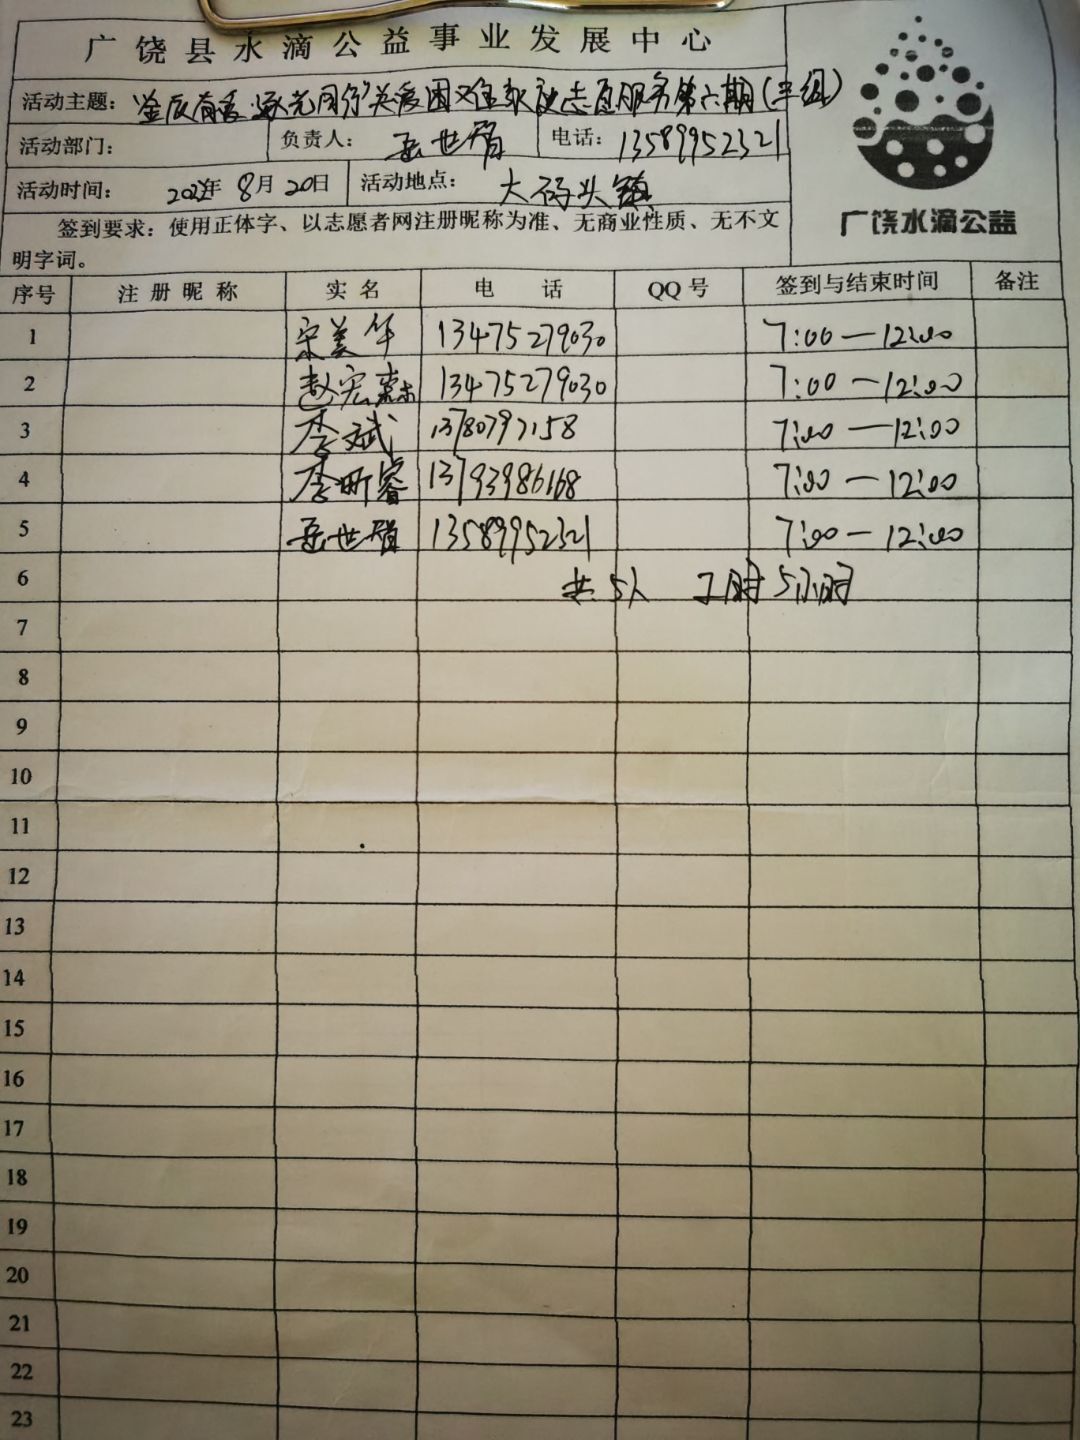 广饶县水滴公益事业发展中心
活动主题： 益辰有爱 逐光同行 关爱困难家庭志愿服务第六期（三组）
活动部门： 负责人： 岳世眉 电话： 13589952321
活动时间： 2022年 8月 20日 活动地点： 大码头镇
签到要求：使用正体字、以志愿者网注册昵称为准、无商业性质、无不文
明字词。
广饶水滴公益
序号 注册昵称 实名 电 话 QQ号 签到与结束时间 备注
1 宋美华 13475279030 7:00—12:00
2 赵宏森 13475279030 7:00—12:00
3 李斌 13780797158 7:00—12:00
4 李昕睿 13793986168 7:00—12:00
5 岳世眉 13589952321 7:00—12:00
6 共5人 工时5小时
7
8
9
10
11
12
13
14
15
16
17
18
19
20
21
22
23